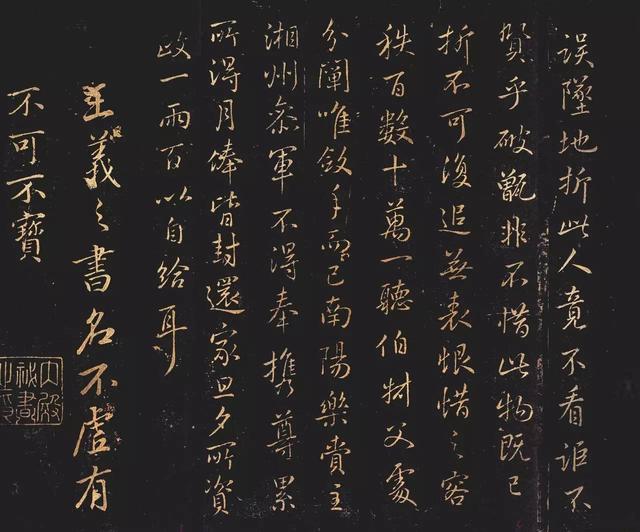 誤墜地折此人竟不看詎不
賢乎破甑非不惜此物既已
折不可復追無表恨惜之容
秩百数十萬一聽伯父處
分闡唯斂手而已南陽樂賞主
湘州叅軍不得奉攜尊累
所得月俸皆封還家旦夕所資
政一兩百以自給耳
王羲之書名不虛有
不可不寶
內殿秘書之印